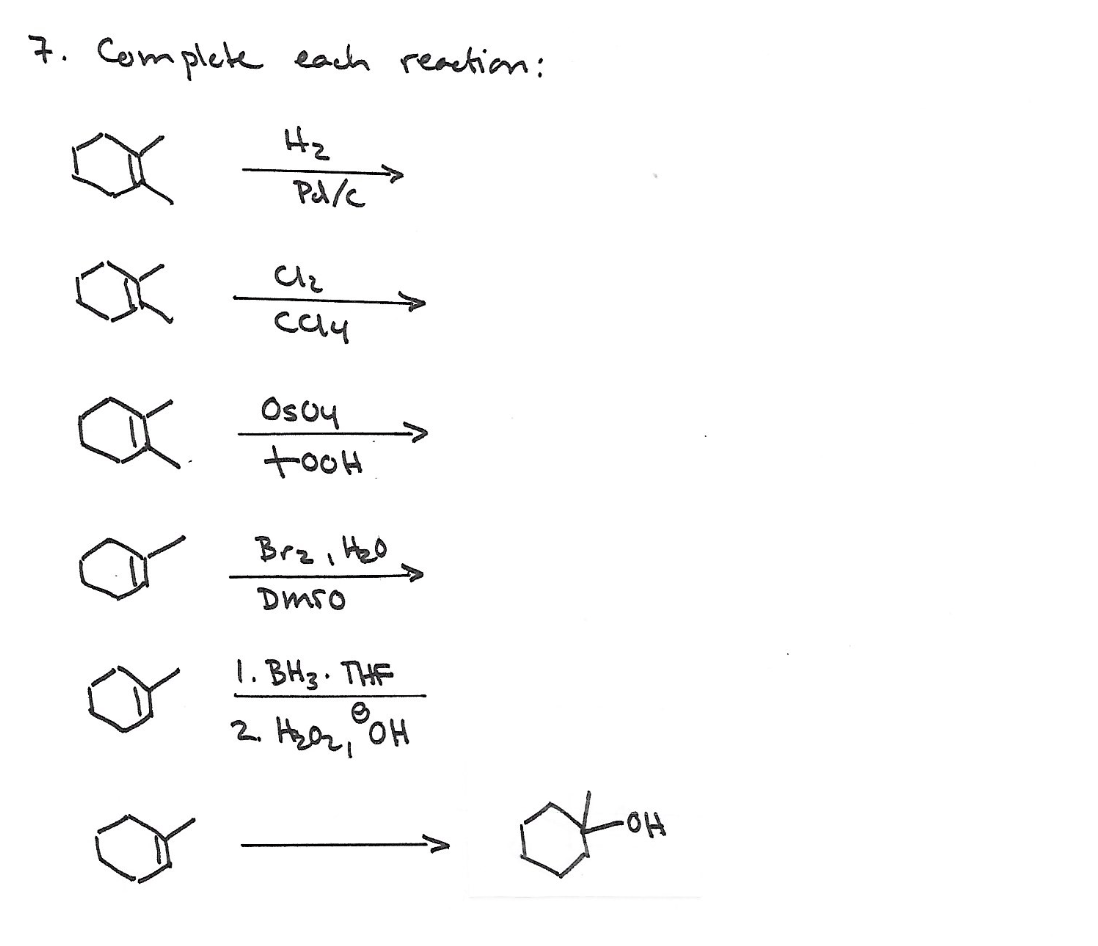 7. Complete each reaction:
H2
Pd/C
Cl2
CCl4
OsO4
+OOH
Br2, H2O
DMSO
1. BH3 · THF
2. H2O2, ⊖OH
OH